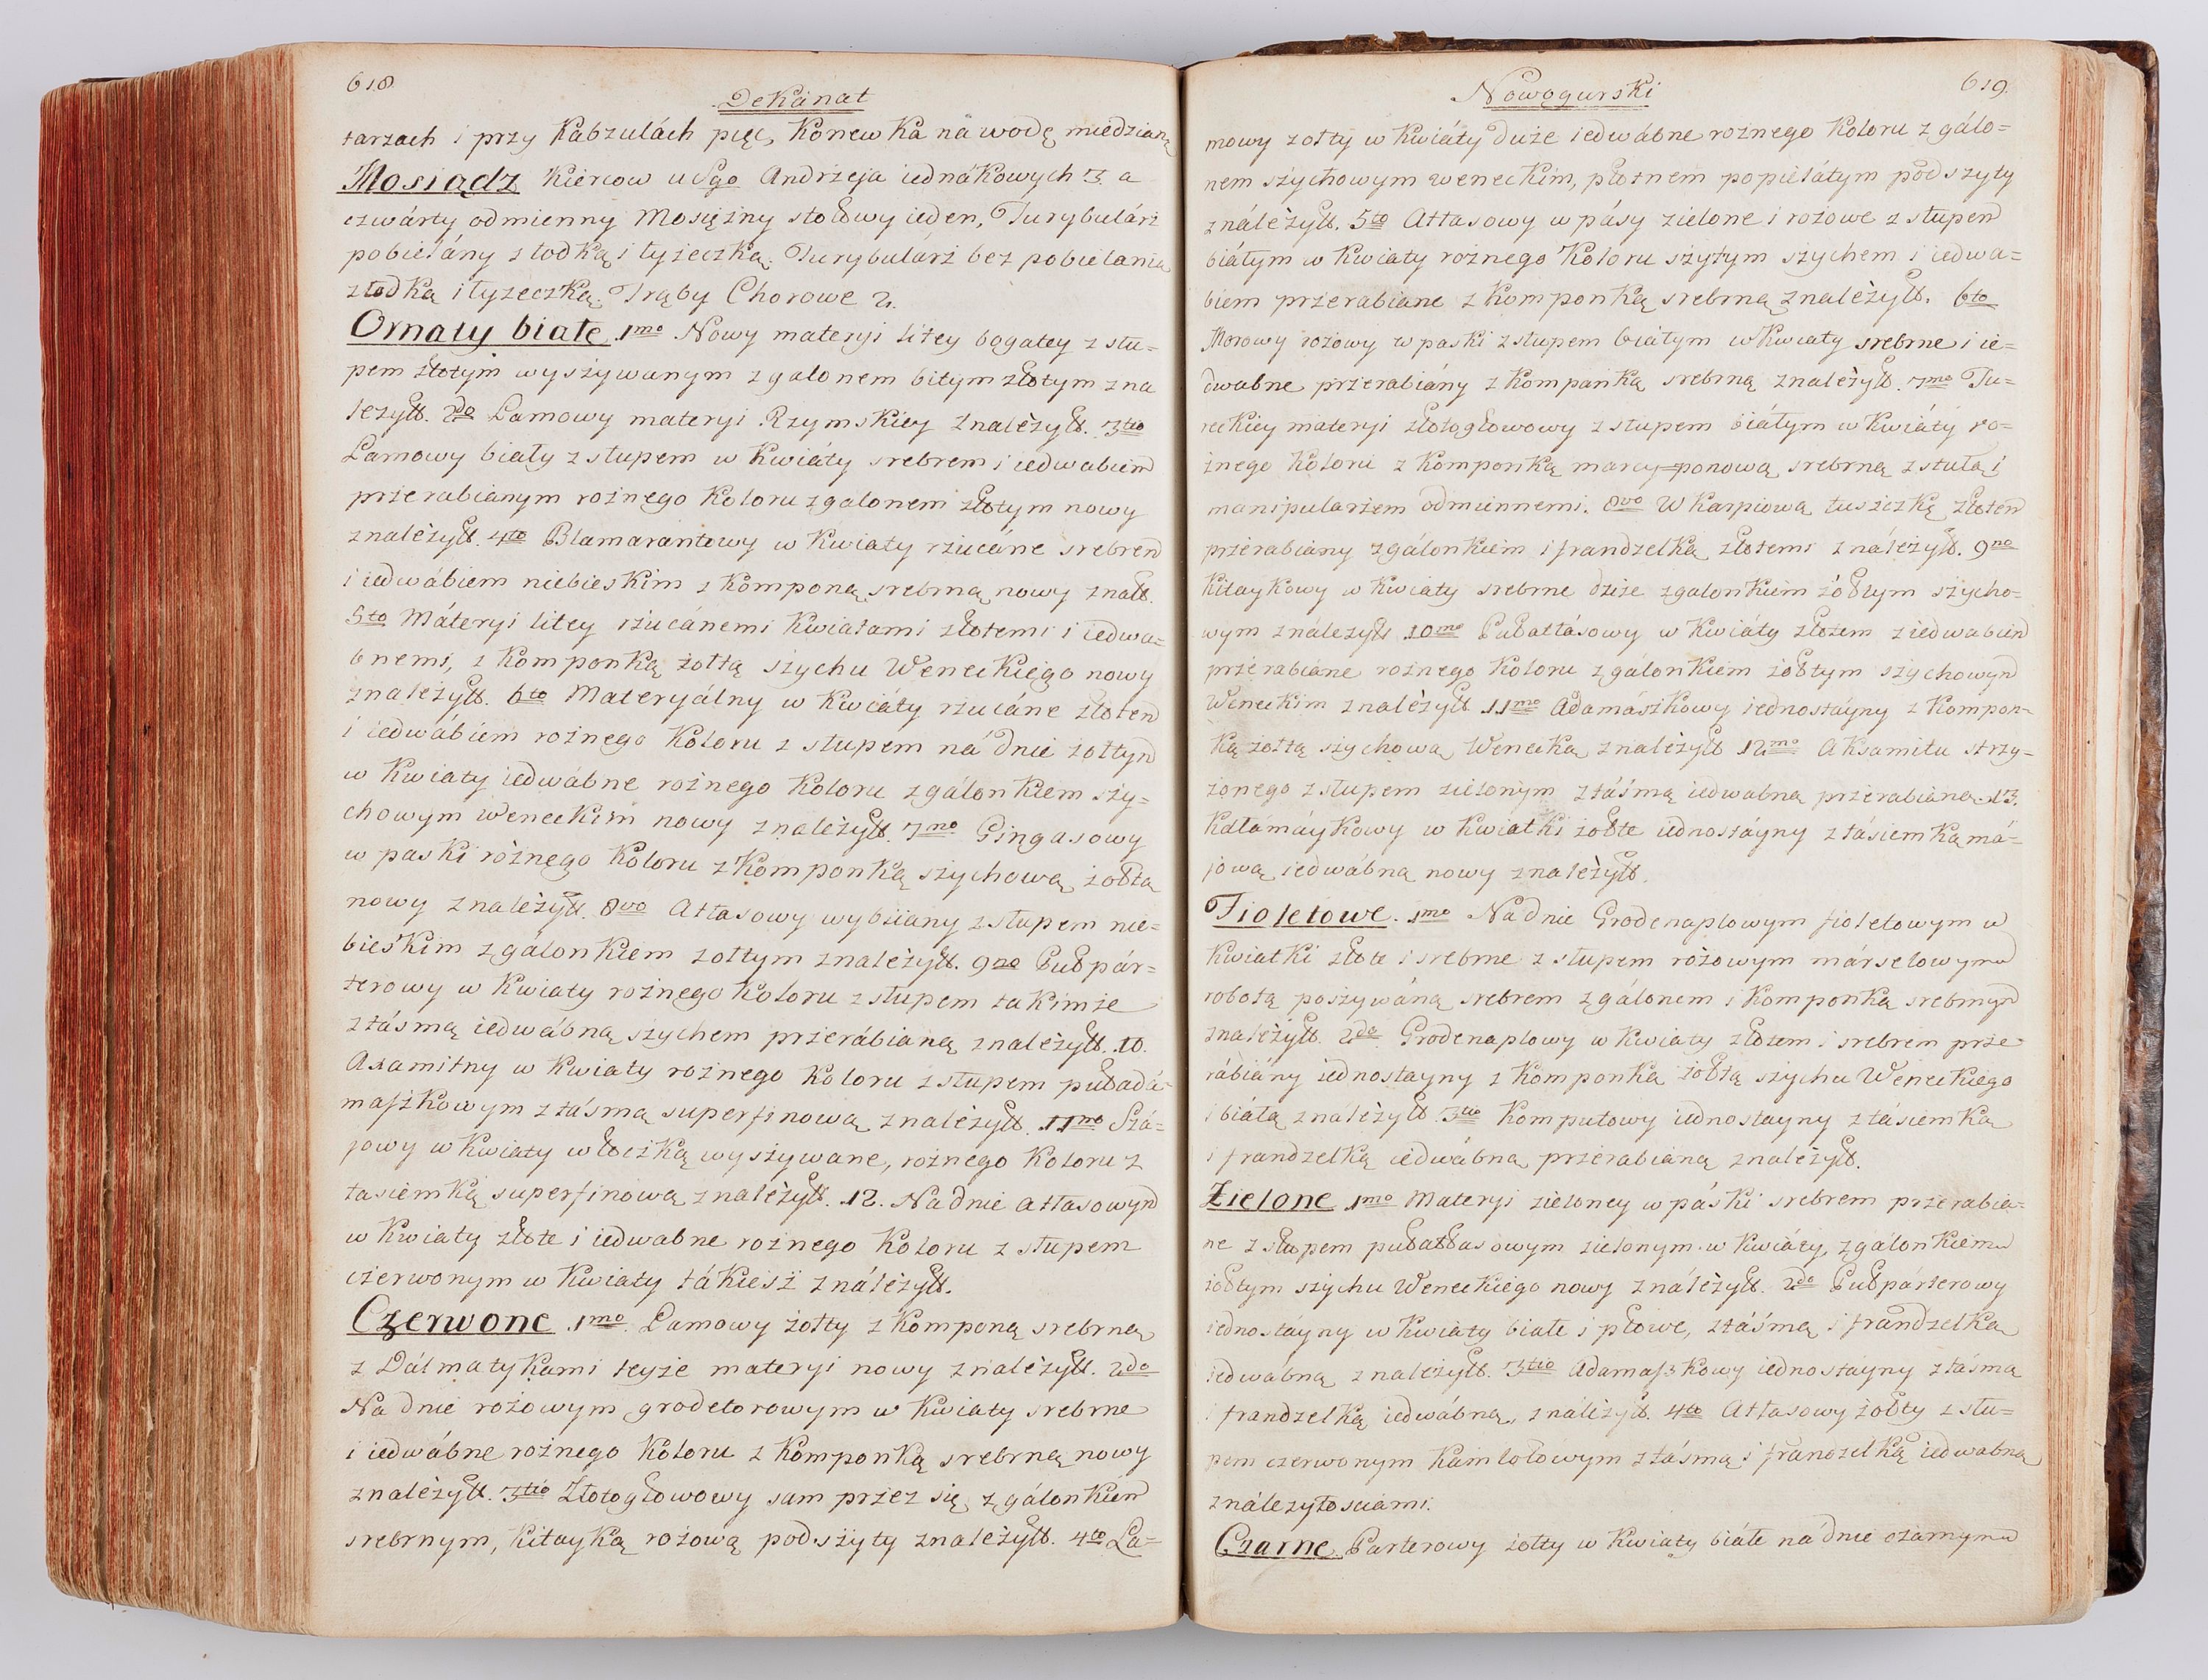 618.
Dekánat
tarzach i przy Kabzulách pięc, Konewka ná wodę miedzianą
Mosiądz Kiercow u Sgo Andrzeja iednákowych 3. a
czwárty odmienny Mosiężny stołowy ieden, Turybulárz
pobielány z łodką i łyżeczką. Turybulárz bez pobielania
z łodką i łyżeczką. Trąby Chorowe 2.
Ornaty białe 1mo Nowy materyi litey bogatey z stu=
pem złotym wyszywanym z galonem bitym złotym z na
leżyłł. 2do Lamowy materyi Rzymskiey z należyłł. 3tio
Lamowy biały z stupem w Kwiáty srebrem i iedwabiem
przerabianym rożnego Koloru z galonem złotym nowy
z należyłł. 4to Blamarantowy w Kwiaty rzucáne srebrem
i iedwábiem niebieskim z Komponą srebrną nowy z nałł.
5to Máteryi litey rzucánemi Kwiatami złotemi i iedwa=
bnemi, z Komponką żołtą szychu Weneckiego nowy
z należyłł. 6to Materyálny w Kwiáty rzucáne złotem
i iedwábiem rożnego Koloru z stupem ná dnie żołtym
w Kwiaty iedwábne rożnego Koloru z gálonkiem szy=
chowym weneckim nowy z należyłł. 7mo Gingasowy
w paski rożnego Koloru z Komponką szychową żołtą
nowy z należyłł. 8vo Atłasowy wybiiany z stupem nie=
bieskim z gálonkiem żołtym z należyłł. 9no Pułpár=
terowy w Kwiaty rożnego Koloru z stupem takimże
z táśmą iedwábną szychem przerábianą z należyłł. 10.
Axamitny w Kwiaty rożnego Koloru z stupem puładá=
maszkowym z táśmą superfinową z należyłł. 11mo Szá=
jowy w Kwiaty włoczką wyszywane, rożnego Koloru z
tasiemką superfinową z należyłł. 12. Na dnie atłasowym
w Kwiaty złote i iedwabne rożnego Koloru z stupem
czerwonym w Kwiaty tákiesz z náleżyłł.
Czerwone 1mo. Lamowy żołty z Komponą srebrną
z Dálmatykami teyże materyi nowy z należyłł. 2do
Na dnie rożowym grodetorowym w Kwiaty srebrne
i iedwábne rożnego Koloru z Komponką srebrną nowy
z należyłł. 3tio Złotogłowowy sam przez się z gálonkiem
srebrnym, Kitayką rożową podszyty z należyłł. 4to La=
Nowogurski
619.
mowy żołty w Kwiáty duże iedwábne rożnego Koloru z gálo=
nem szychowym weneckim, płotnem popielátym podszyty
z náleżyłł. 5to Atłasowy w pásy zielone i rożowe z stupem
białym w Kwiaty rożnego Koloru szytym szychem i iedwa=
biem przerabiane z Komponką srebrną z należyłł. 6to
Morowy rożowy w paski z stupem białym w Kwiaty srebrne i ie=
dwabne przerabiány z Komponką srebrną z należyłł. 7mo Tu=
reckiey materyi złotogłowowy z stupem białym w Kwiáty ro=
żnego Koloru z Komponką marcy=ponową srebrną z stułą i
manipularzem odmiennemi. 8vo W Karpiową łuszczkę złotem
przerabiany z gálonkiem i frandzelką złotemi z należyłł. 9no
Kitaykowy w Kwiaty srebrne duże z galonkiem żółłym szycho=
wym z náleżyłł 10mo Pułatłásowy w Kwiáty złotem z iedwabiem
przerabiane rożnego Koloru z gálonkiem żołtym szychowym
Weneckim z należyłł 11mo Adamászkowy iednostáyny z Kompon=
ką żołtą szychową Wenecką z należyłł 12mo Aksamitu strzy=
żonego z stupem zielonym z táśmą iedwabną przerabianą. 13.
Kałámáykowy w Kwiatki żołte iednostáyny z tásiemką má=
jową iedwábną nowy z należyłł.
Fioletowe. 1mo Na dnie Grodenaplowym fioletowym w
Kwiatki złote i srebrne z stupem rożowym márselowym
robotą poszywáną srebrem z gálonem i Komponką srebrnym
z należyłł. 2do. Grodenaplowy w Kwiaty złotem i srebrem prze
rábiány iednostayny z Komponką żołtą szychu Weneckiego
i białą z należyłł 3tio Komputowy iednostayny z tásiemką
i frandzelką iedwábną przerabianą z należyłł.
Zielone 1mo Materyi zieloney w páski srebrem przerabia=
ne z słupem pułatłasowym zielonym w Kwiáty, z gálonkiem
żołtym szychu Weneckiego nowy z należyłł. 2do Pułpárterowy
iednostáyny w Kwiaty białe i płowe, z táśmą i frandzelką
iedwábną z należyłł. 3tio Adamaszkowy iednostáyny z taśmą
i frandzelką iedwábną, z należyłł. 4to Atłasowy żołty z stu=
pem czerwonym Kamlotowym z táśmą i frandzelką iedwabną
z náleżytosciami.
Czarne. Parterowy żołty w Kwiaty białe na dnie czarnym